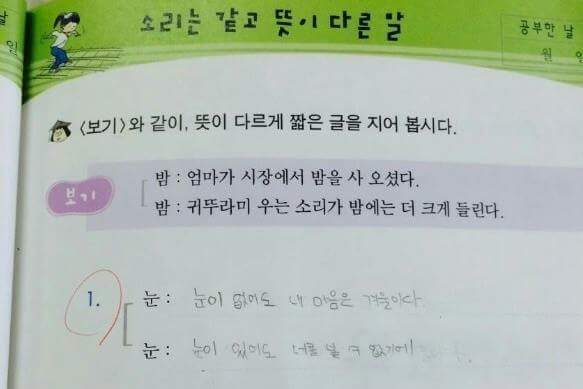 소리는 같고 뜻이 다른 말
공부한 날
월 일
<보기>와 같이, 뜻이 다르게 짧은 글을 지어 봅시다.
보기
밤 : 엄마가 시장에서 밤을 사 오셨다.
밤 : 귀뚜라미 우는 소리가 밤에는 더 크게 들린다.
1.
눈 : 눈이 없어도 내 마음은 겨울이다.
눈 : 눈이 있어도 너를 볼 수 없기에